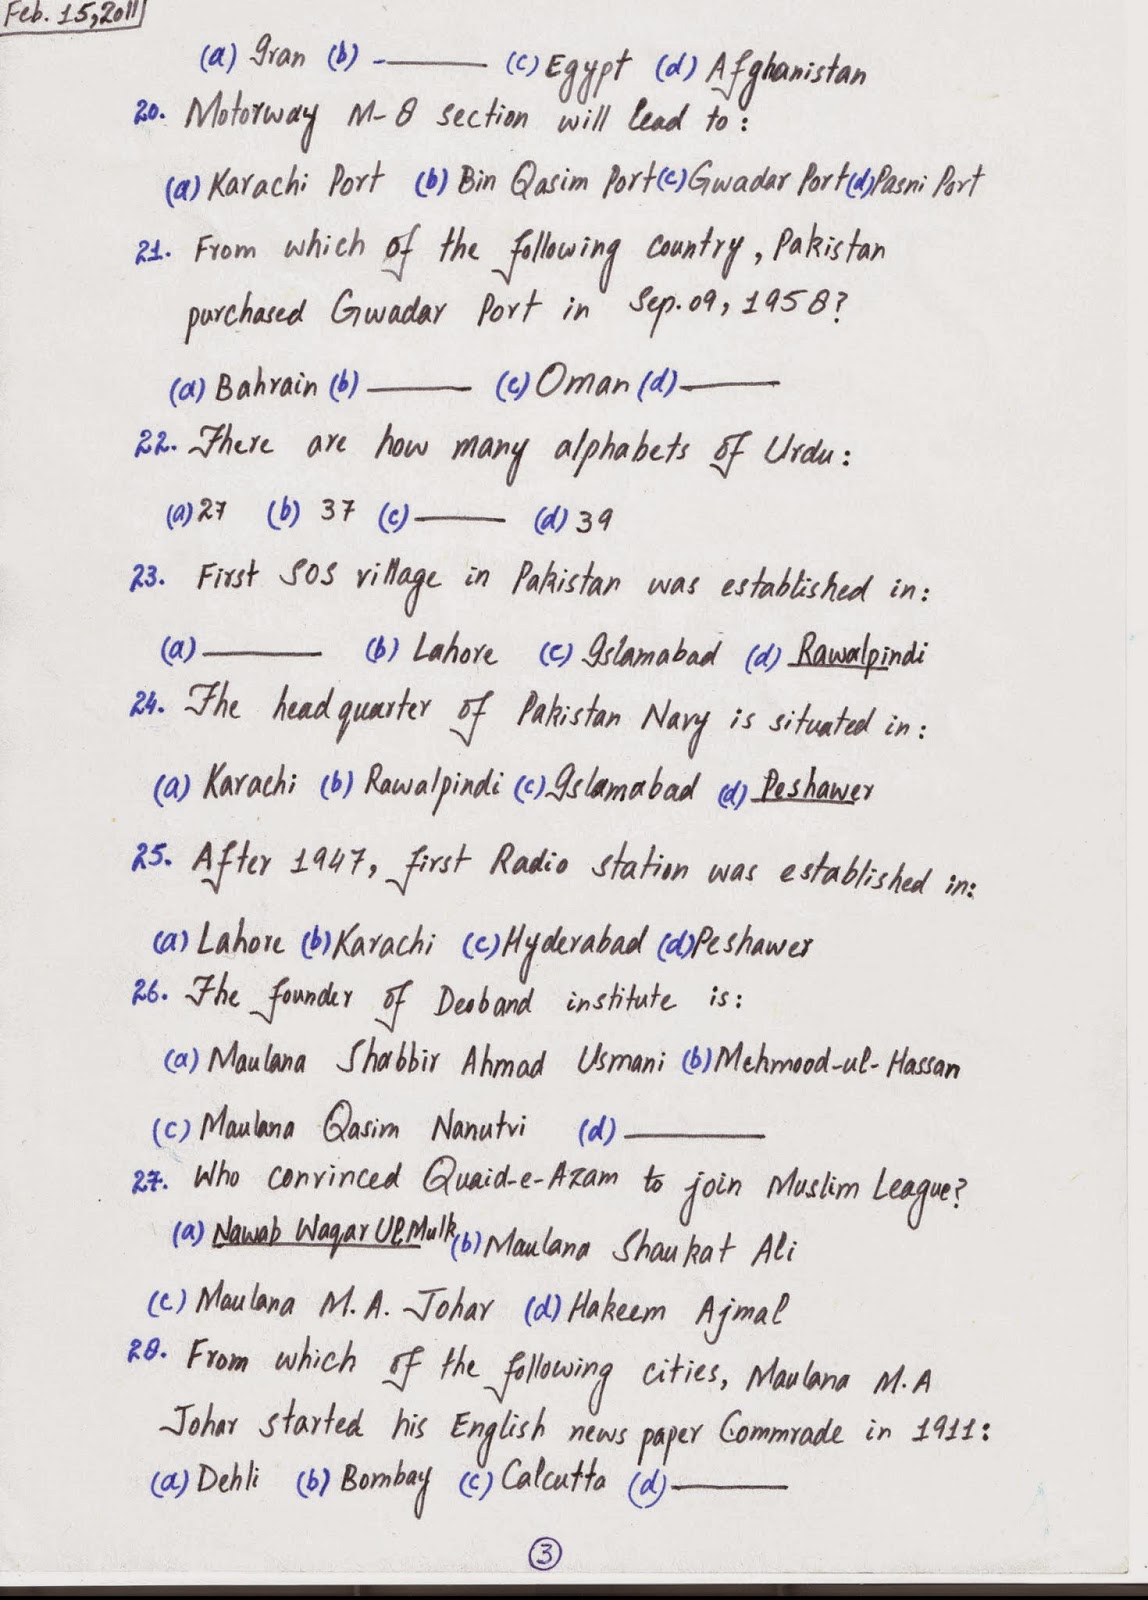 Feb. 15, 2011
(a) Iran (b) - ______ (c) Egypt (d) Afghanistan
20. Motorway M-8 section will lead to:
(a) Karachi Port (b) Bin Qasim Port (c) Gwadar Port (d) Pasni Port
21. From which of the following country, Pakistan
purchased Gwadar Port in Sep. 09, 1958?
(a) Bahrain (b) ______ (c) Oman (d) ______
22. There are how many alphabets of Urdu:
(a) 27 (b) 37 (c) ______ (d) 39
23. First SOS village in Pakistan was established in:
(a) ______ (b) Lahore (c) Islamabad (d) Rawalpindi
24. The head quarter of Pakistan Navy is situated in:
(a) Karachi (b) Rawalpindi (c) Islamabad (d) Peshawer
25. After 1947, first Radio station was established in:
(a) Lahore (b) Karachi (c) Hyderabad (d) Peshawer
26. The founder of Deoband institute is:
(a) Maulana Shabbir Ahmad Usmani (b) Mehmood-ul-Hassan
(c) Maulana Qasim Nanutvi (d) ______
27. Who convinced Quaid-e-Azam to join Muslim League?
(a) Nawab Waqar Ul Mulk (b) Maulana Shaukat Ali
(c) Maulana M.A. Johar (d) Hakeem Ajmal
28. From which of the following cities, Maulana M.A
Johar started his English news paper Commrade in 1911:
(a) Dehli (b) Bombay (c) Calcutta (d) ______
3